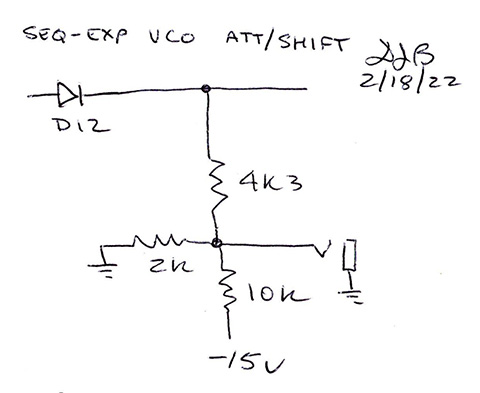 SEQ-EXP VCO ATT/SHIFT DJB
2/18/22
D12
4K3
2K
10K
-15V